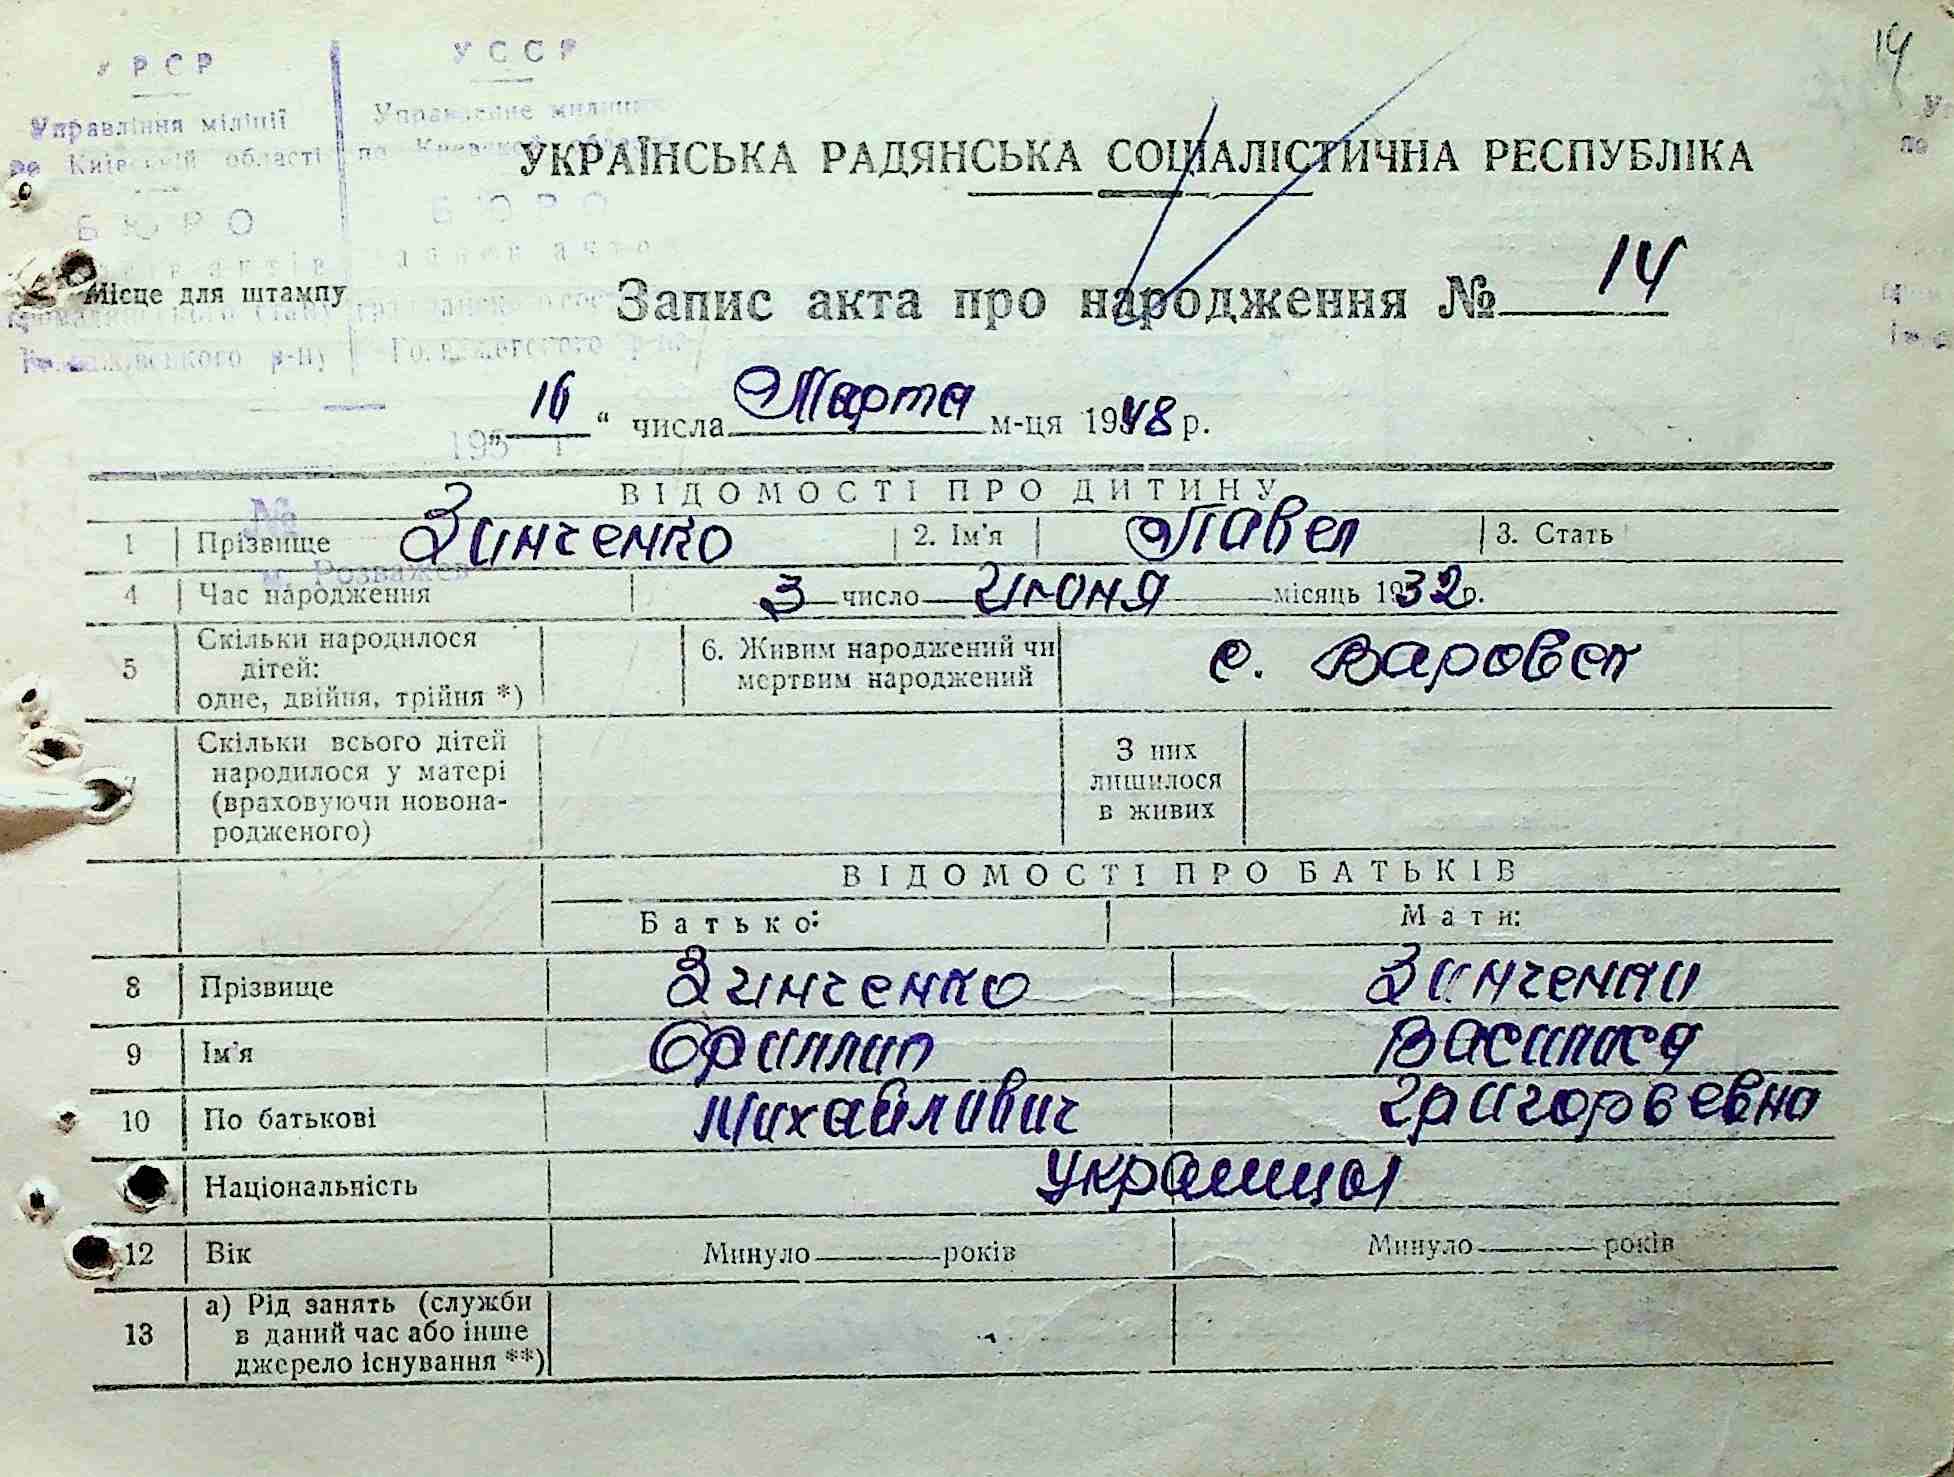 14
УРСР
УССР
Управління міліції
Управление милиции
по Київській області
по Киевской области
УКРАЇНСЬКА РАДЯНСЬКА СОЦІАЛІСТИЧНА РЕСПУБЛІКА
БЮРО
БЮРО
Місце для штампу
Запис акта про народження № 14
„ 16 “ числа Марта м-ця 1948 р.
195 г
ВІДОМОСТІ ПРО ДИТИНУ
№
1 Прізвище Зинченко 2. Ім'я Павел 3. Стать
м. Розважев
4 Час народження 3 число Июня місяць 1932 р.
5 Скільки народилося дітей: одне, двійня, трійня *) 6. Живим народжений чи мертвим народжений с. Варовск
7 Скільки всього дітей народилося у матері (враховуючи новонародженого) З них лишилося в живих
ВІДОМОСТІ ПРО БАТЬКІВ
Батько: Мати:
8 Прізвище Зинченко Зинченко
9 Ім'я Филлип Василиса
10 По батькові Михайлович Григорьевна
Національність Украинцы
12 Вік Минуло років Минуло років
13 а) Рід занять (служби в даний час або інше джерело існування **)